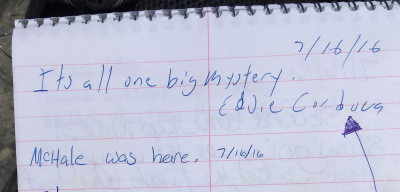 7/16/16
Its all one big mystery.
Eddie Cordova
McHale was here. 7/16/16